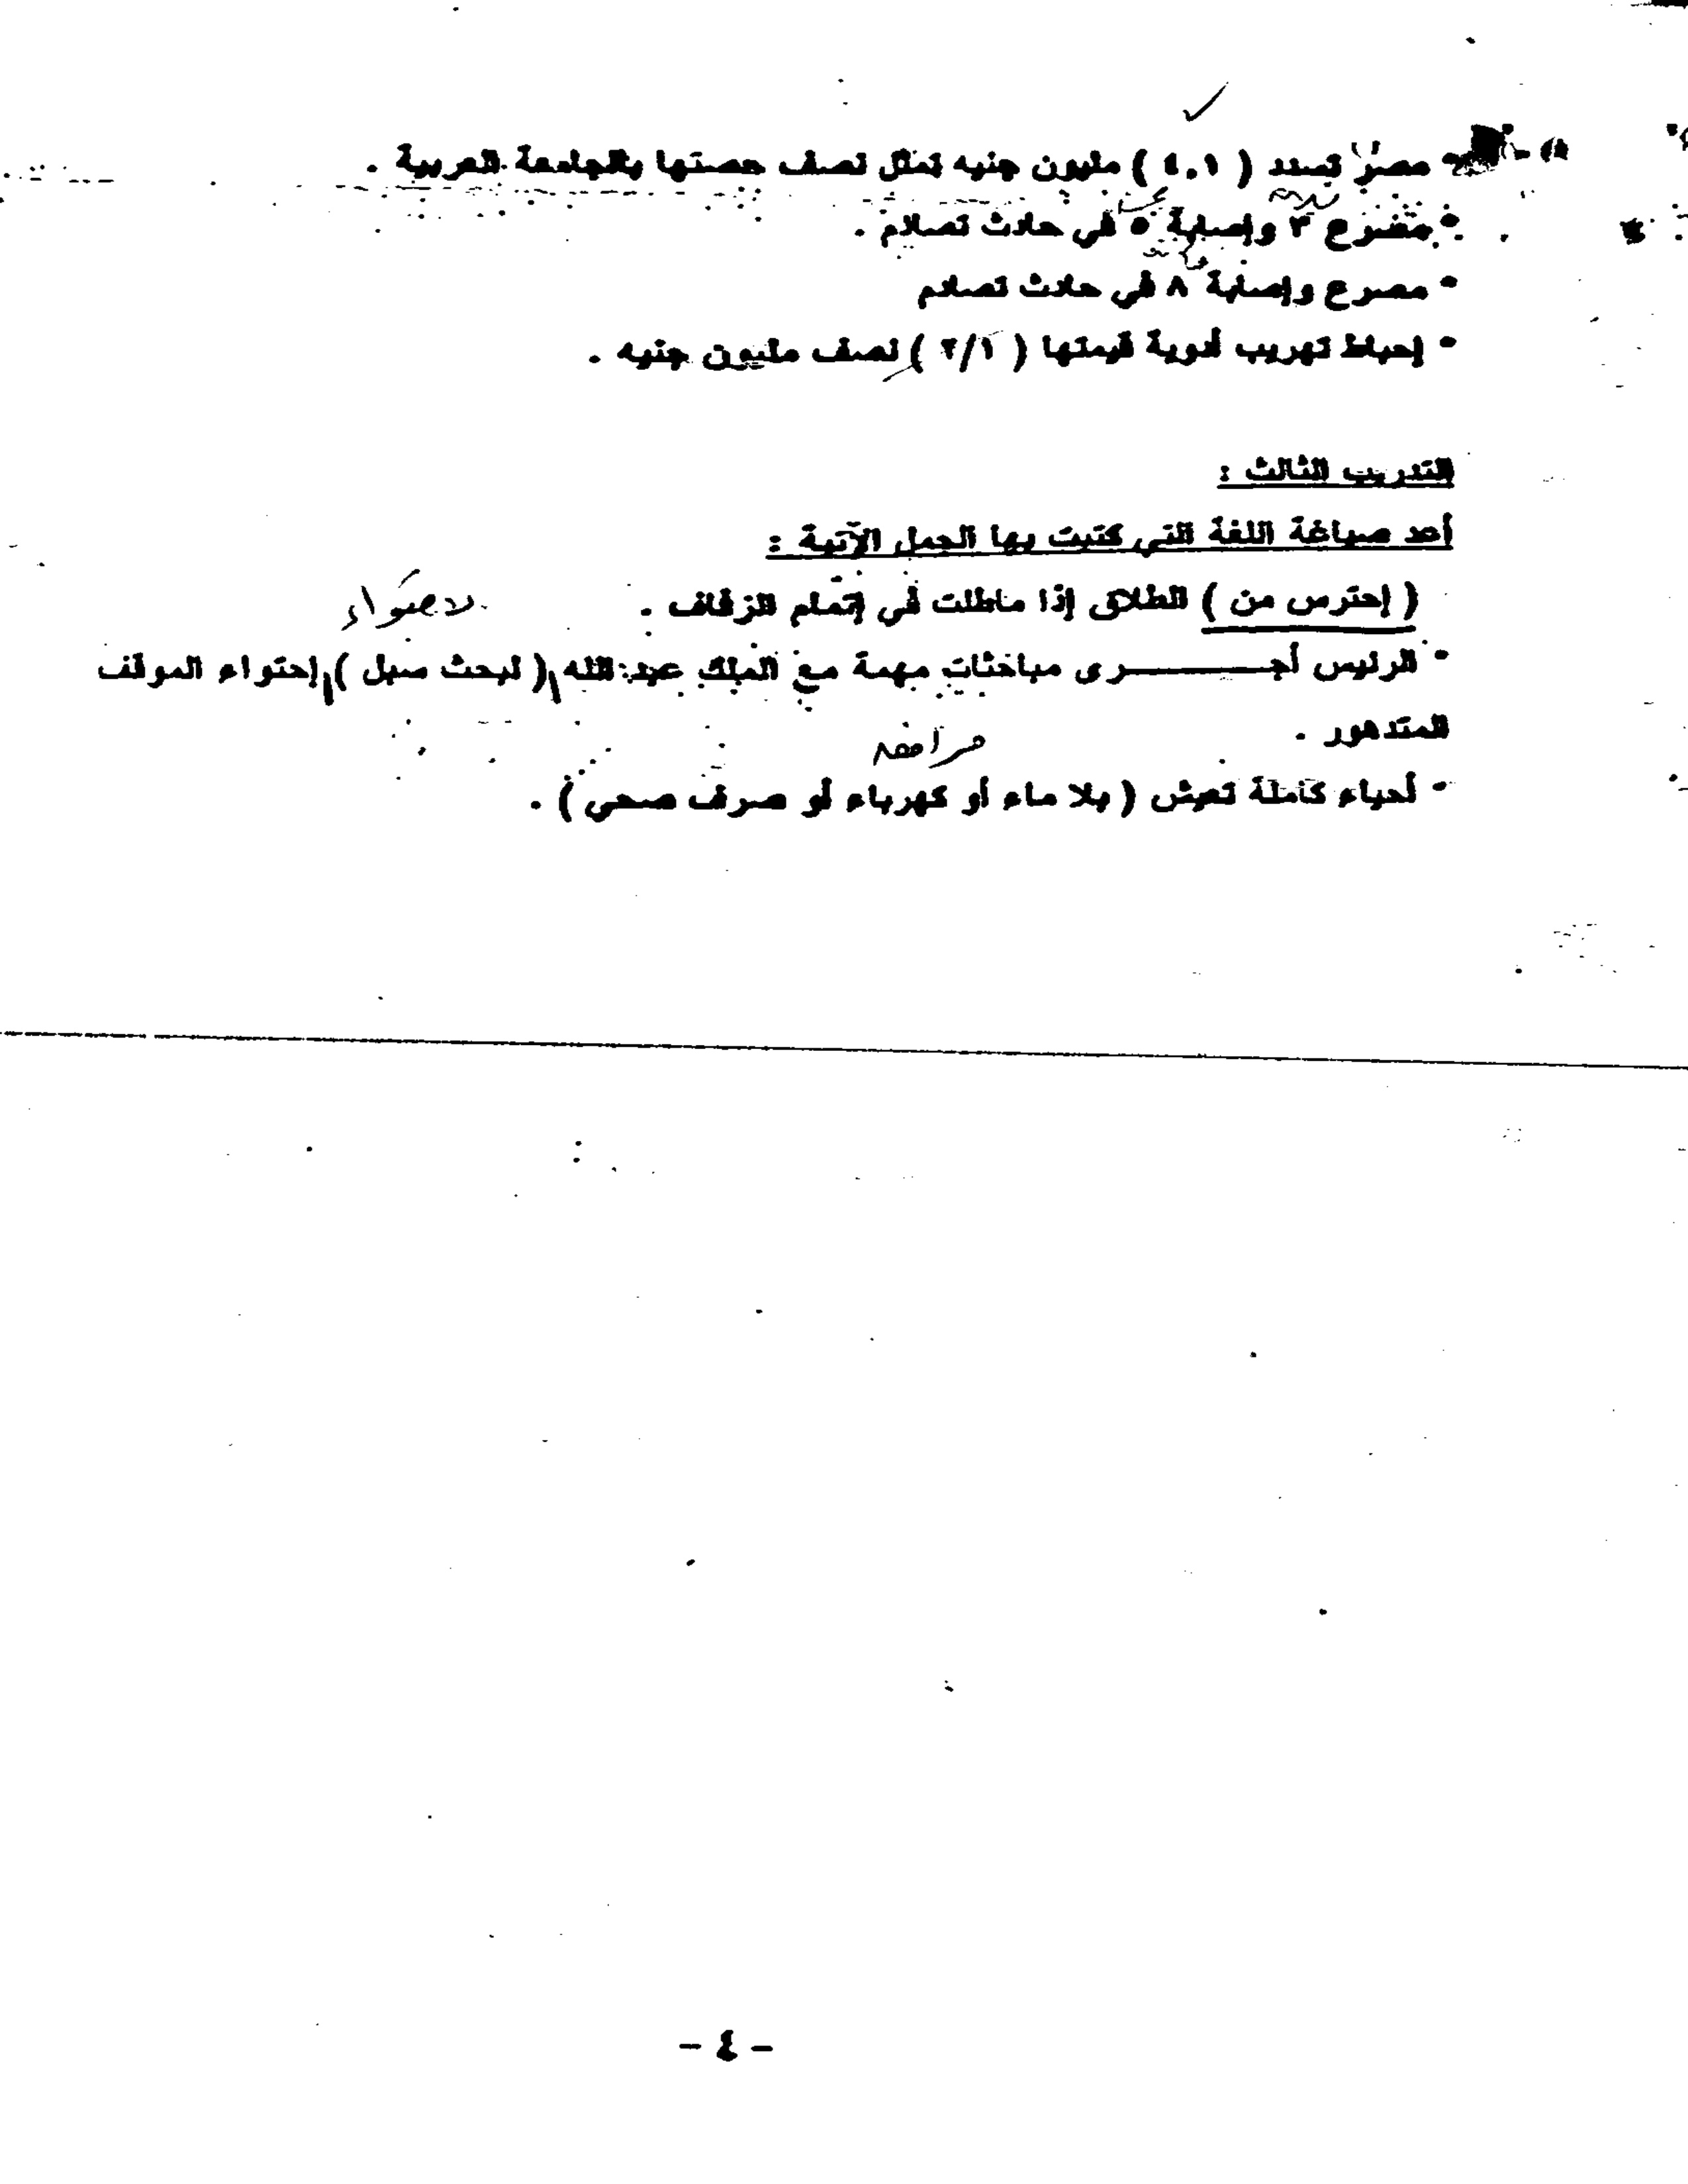 - مصر تسدد ( ٤.١ ) مليون جنيه تمثل نصف حصتها بالجامعة العربية .
- مصرع ٣ وإصابة ٥ في حادث تصادم .
- مصرع وإصابة ٨ في حادث تصادم
- إحباط تهريب أدوية قيمتها ( ٢/١ ) نصف مليون جنيه .
التدريب الثالث :
أعد صياغة اللغة التي كتبت بها الجمل الآتية :
( إحترس من ) الطلاق إذا ماطلت في إتمام الزفاف .
لاحتواء
- الرئيس أجــــــرى مباحثات مهمة مع الملك عبد الله ( لبحث سبل ) إحتواء الموقف
المتدهور .
مرافق
- أحياء كاملة تعيش ( بلا ماء أو كهرباء أو صرف صحي ) .
- ٤ -